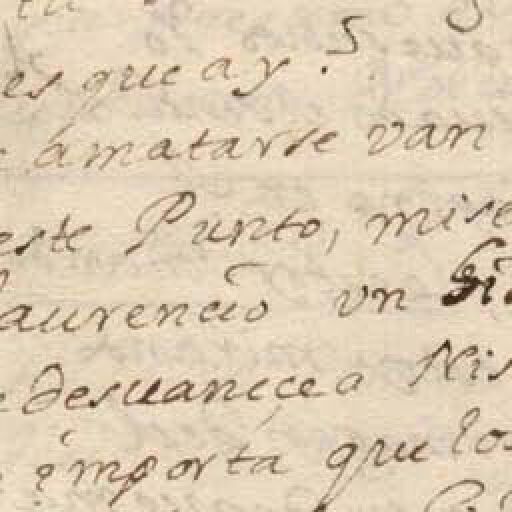 es que ay .S.
amatarse van
este Punto, mise
Laurencio vn
desuanecea Nis
ymporta que los